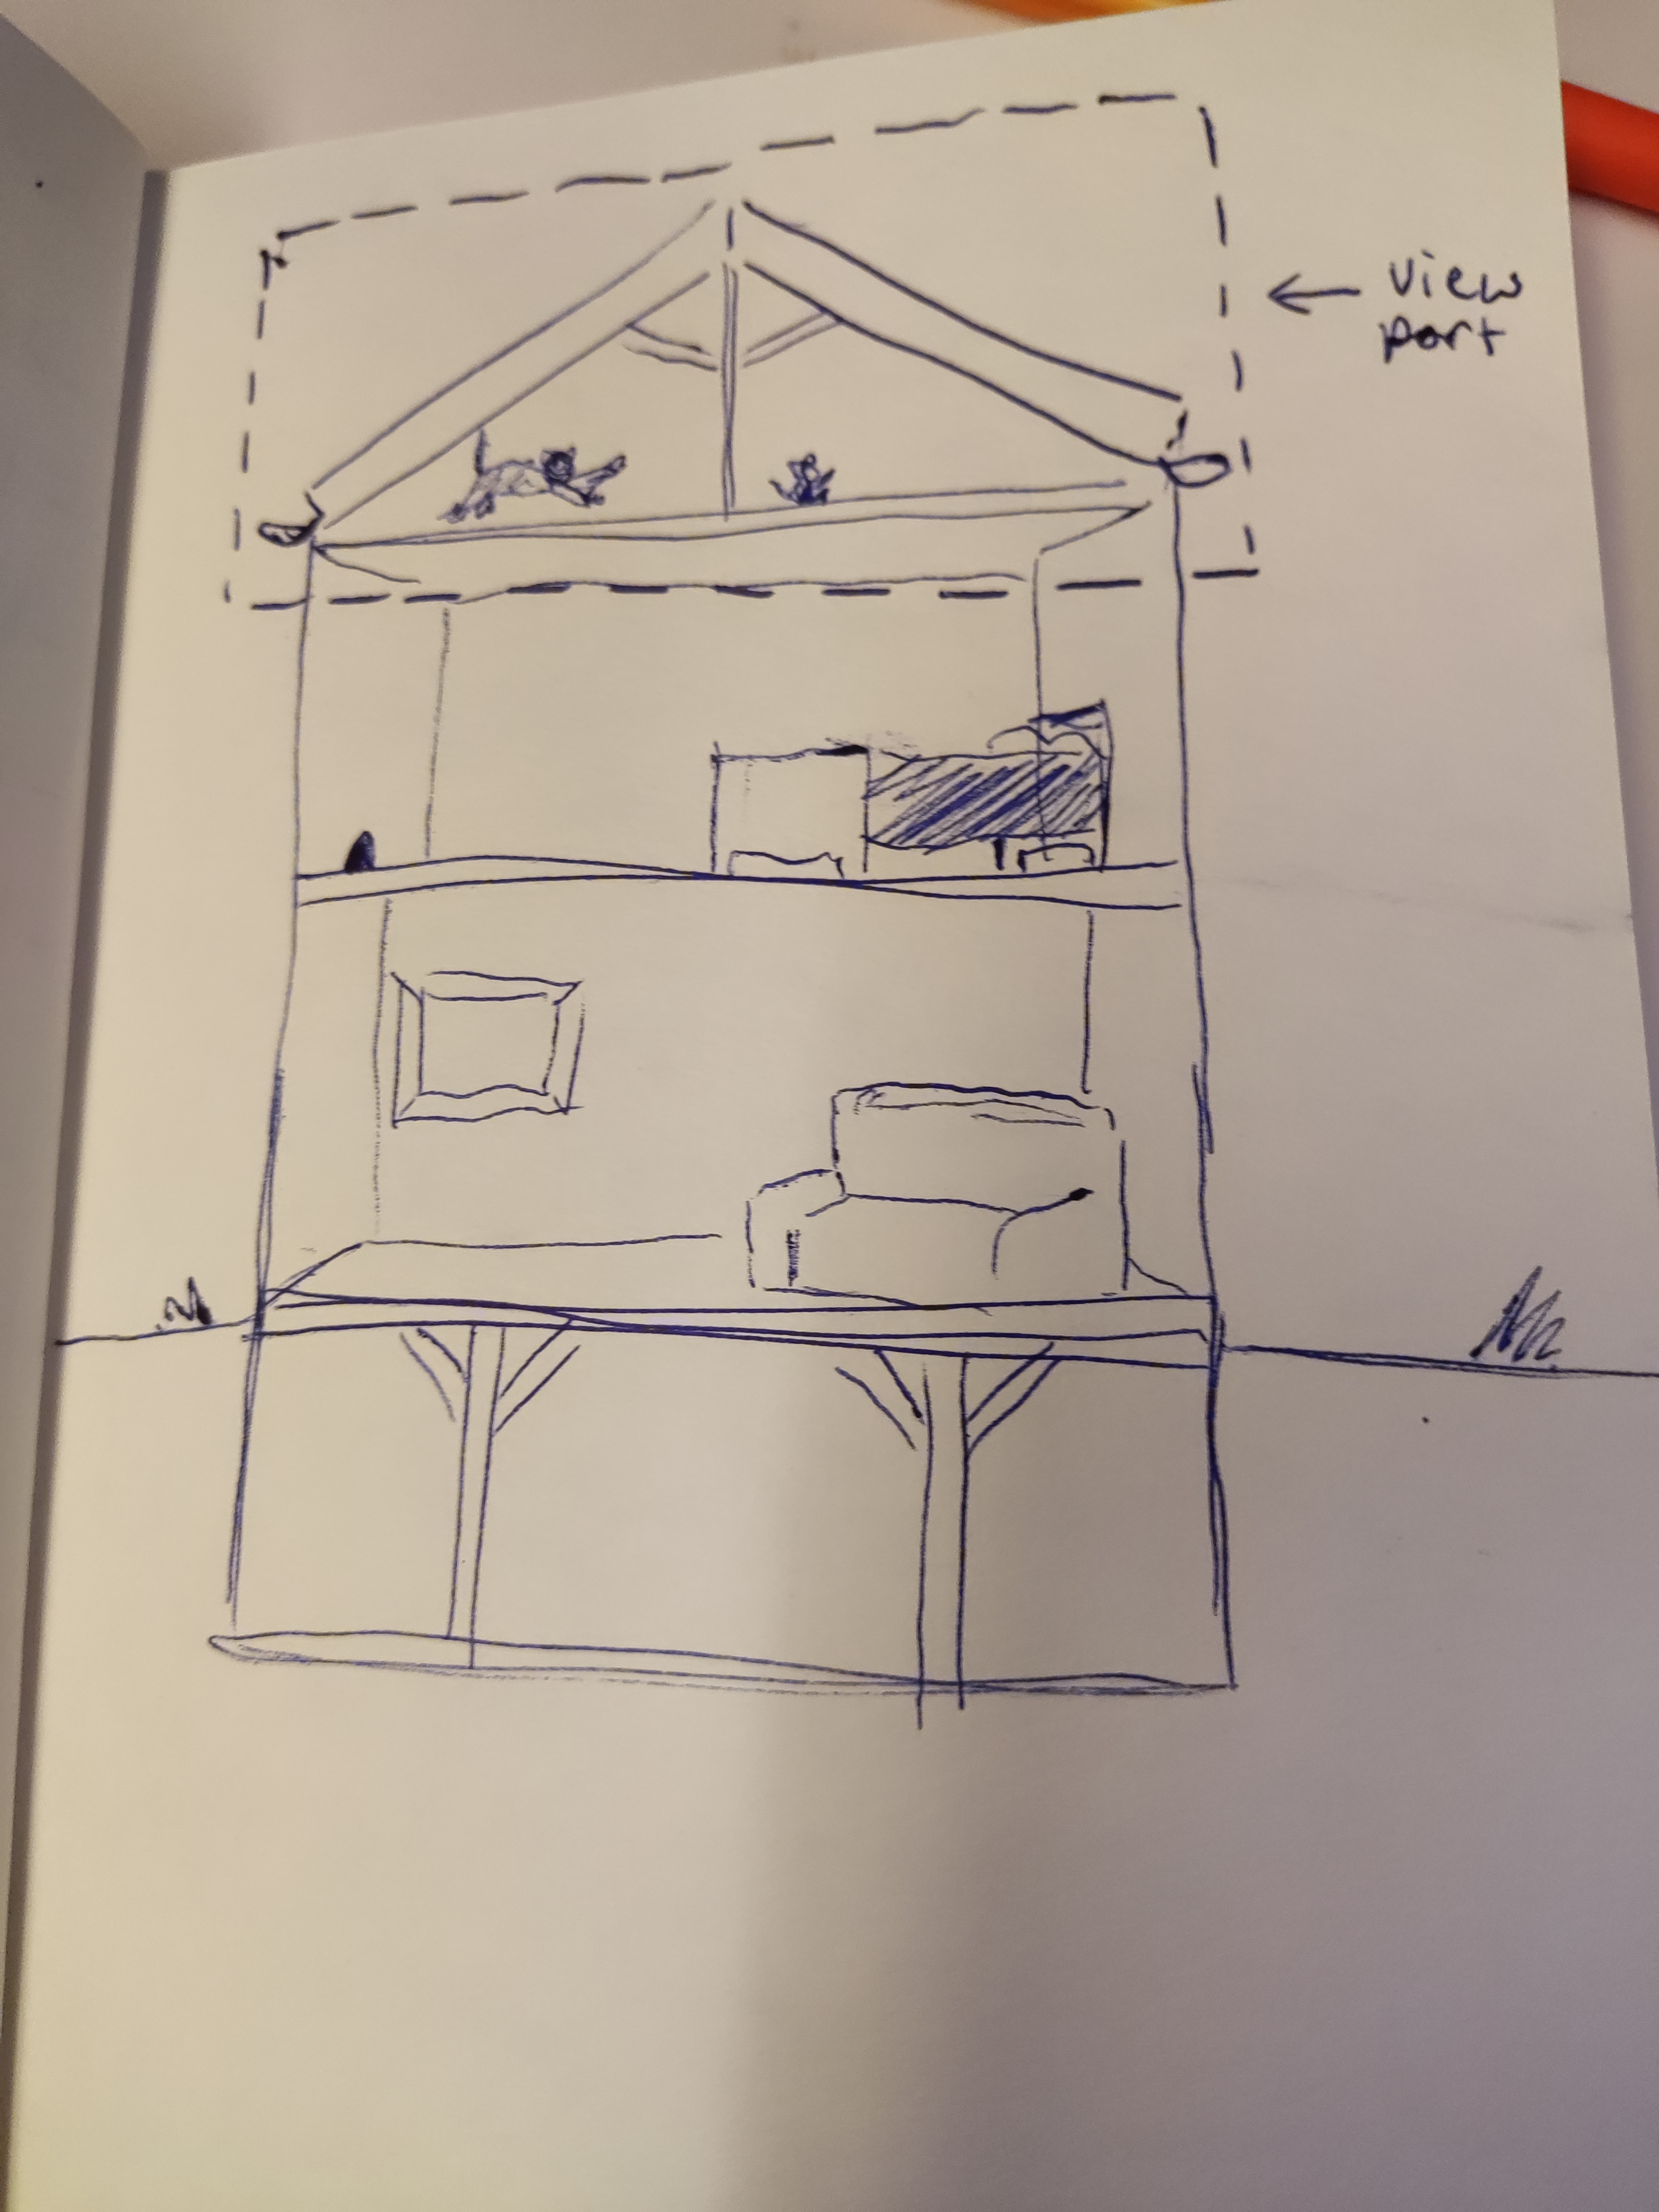 view
port